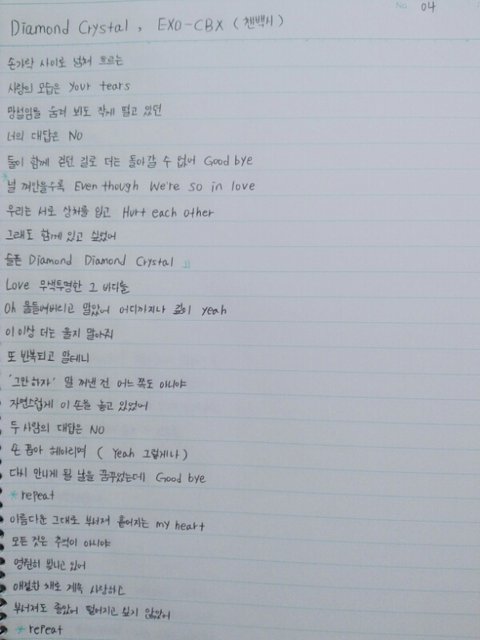 No. 04
Diamond Crystal, EXO-CBX (첸백시)
손가락 사이로 넘쳐 흐르는
사랑의 모습은 your tears
망설임을 숨겨 봐도 작게 떨고 있던
너의 대답은 NO
둘이 함께 걷던 길로 더는 돌아갈 수 없어 Good bye
*널 껴안을수록 Even though We're so in love
우리는 서로 상처를 입고 Hurt each other
그래도 함께 있고 싶었어
슬픈 Diamond Diamond Crystal 」
Love 무색투명한 그 바다를
Oh 물들여버리고 말았어 어디까지나 깊이 yeah
이 이상 더는 울지 말아줘
또 반복되고 말테니
'그만하자' 말 꺼낸 건 어느 쪽도 아니야
자연스럽게 이 손을 놓고 있었어
두 사람의 대답은 NO
손 꼽아 헤아리며 ( Yeah 그렇게나 )
다시 만나게 될 날을 꿈꾸었는데 Good bye
* repeat
아름다운 그대로 부서져 흩어지는 my heart
모든 것은 추억이 아니야
영원히 빛나고 있어
애절한 채로 계속 사랑하고
부서져도 좋았어 떨어지고 싶지 않았어
* repeat